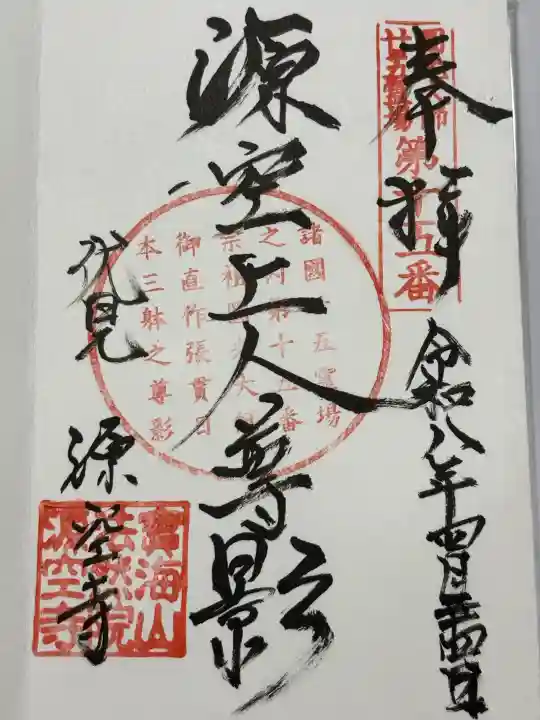 奉拝
令和八年四月
第十五番
源空上人尊影
諸國二十五霊場
之内第十五番
御直作張貫日
本三躰之尊影
伏見
源空寺
寶海山
法然院
源空寺